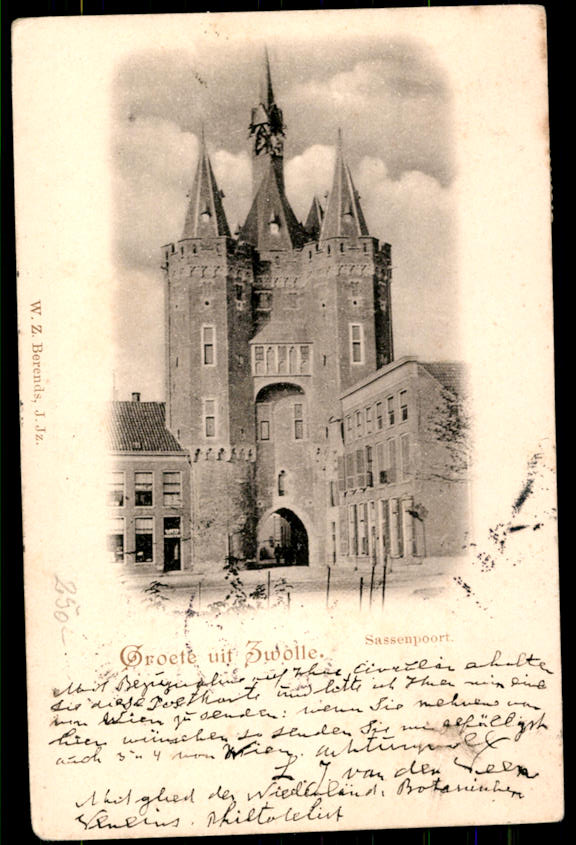 W. Z. Berends, J. Jz.
250-
Sassenpoort.
Groete uit Zwolle.
Mit Bezugnahme auf Ihre Circulär erhalten
Sie diese Postkarte und bitte ich Ihnen mir eine
von Wien zu senden: wenn Sie mehrere von
hier wünschen so senden Sie mir gefälligst
auch 3 à 4 von Wien. achtungsvoll
van der Veen
Mitglied der Niederländ. Botanischen
Vereins. Philotelist